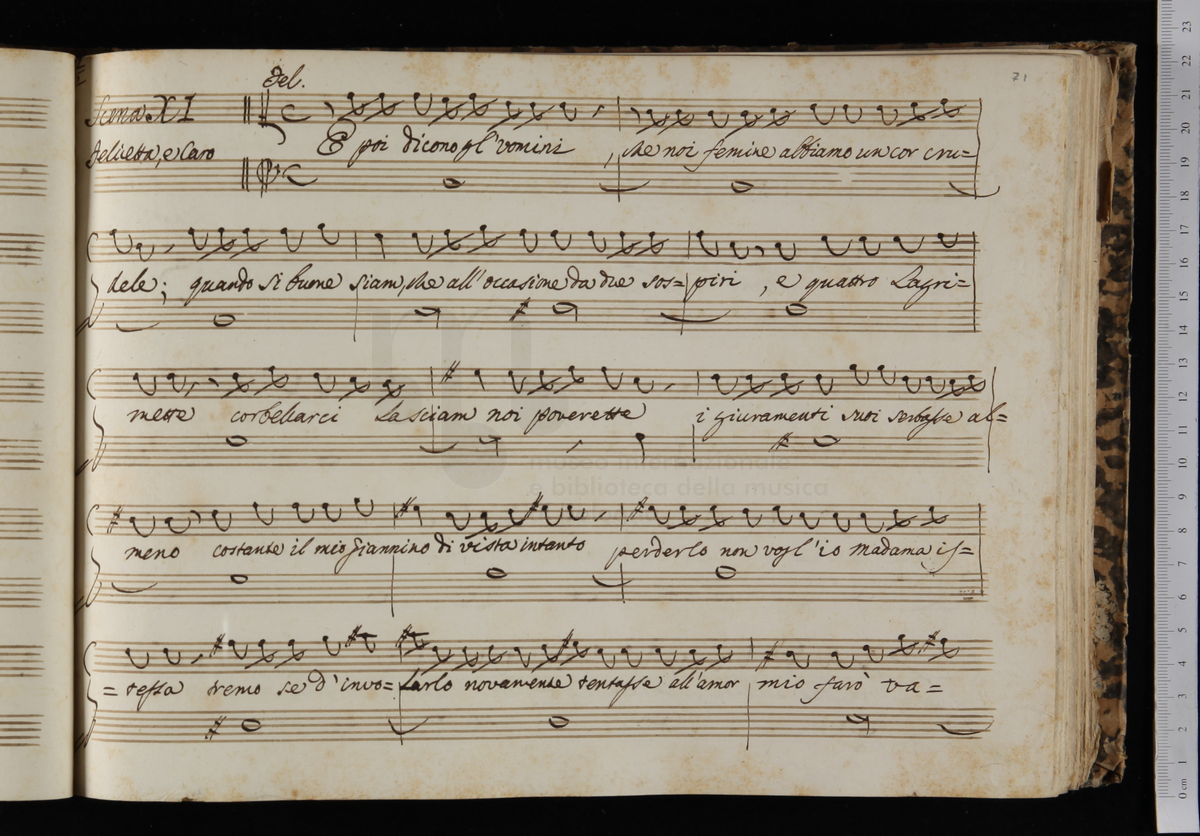 71
Del.
Scena XI
Delietta, e Caro
E poi dicono gl'vomini, che noi femine abbiamo un cor cru=
dele; quando si buone siam, che all'occasione da due sos=piri, e quattro Lagri=
mette corbellarci Lasciam noi poverette i giuramenti suoi serbasse al=
meno costante il mio Giannino di vista intanto perderlo non vogl'io madama is=
=tessa tremo se d'invo=larlo novamente tentasse all'amor mio farò va=
museo internazionale
e biblioteca della musica
0 cm 1 2 3 4 5 6 7 8 9 10 11 12 13 14 15 16 17 18 19 20 21 22 23